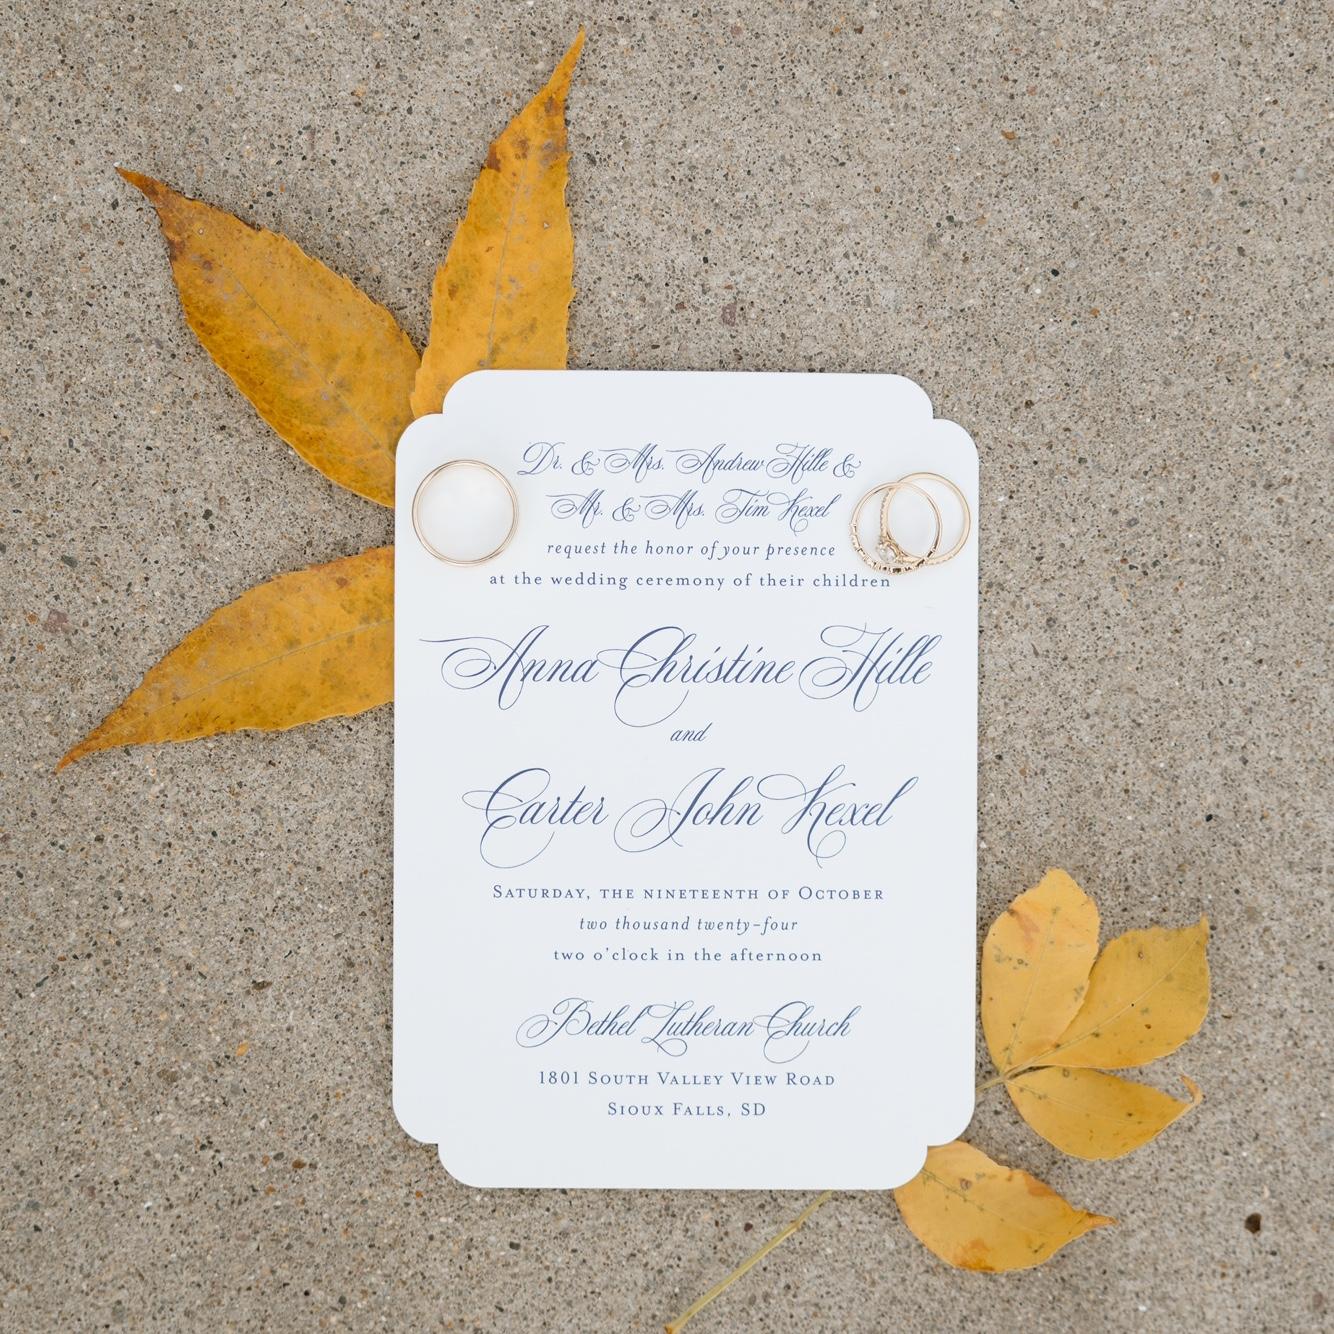 Dr. & Mrs. Andrew Hille &
Mr. & Mrs. Tim Kexel
request the honor of your presence
at the wedding ceremony of their children
Anna Christine Hille
and
Carter John Kexel
Saturday, the nineteenth of October
two thousand twenty-four
two o'clock in the afternoon
Bethel Lutheran Church
1801 South Valley View Road
Sioux Falls, SD